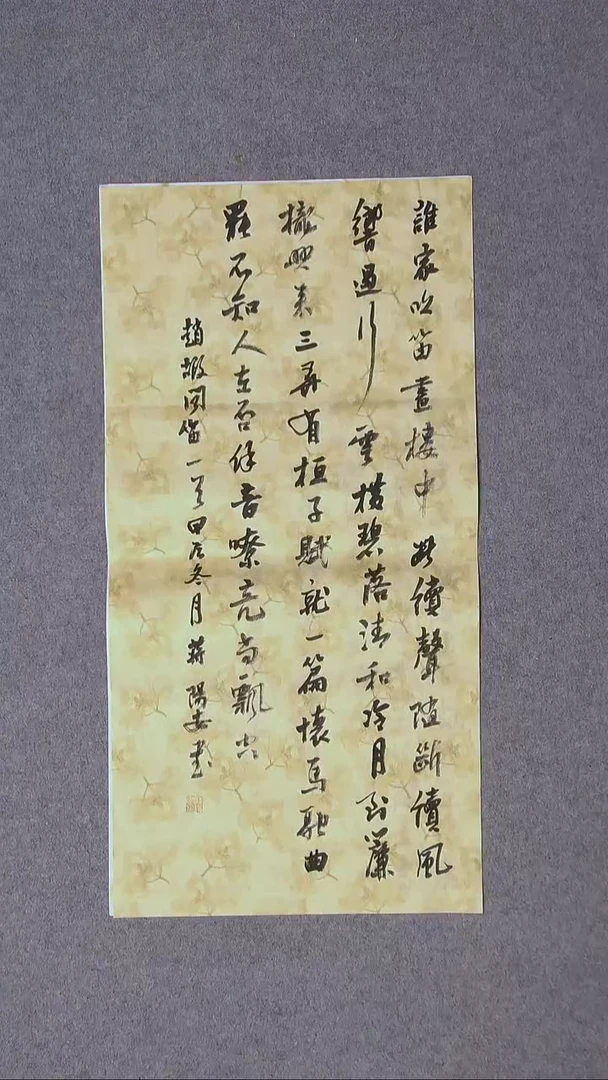 誰家吹笛畫樓中斷續聲隨斷續風
響遏行雲橫碧落清和冷月到簾
櫳興來三弄有桓子賦就一篇懷馬融曲
罷不知人在否餘音嘹亮尚飄空
趙嘏聞笛一首甲辰冬月蔣陽安書